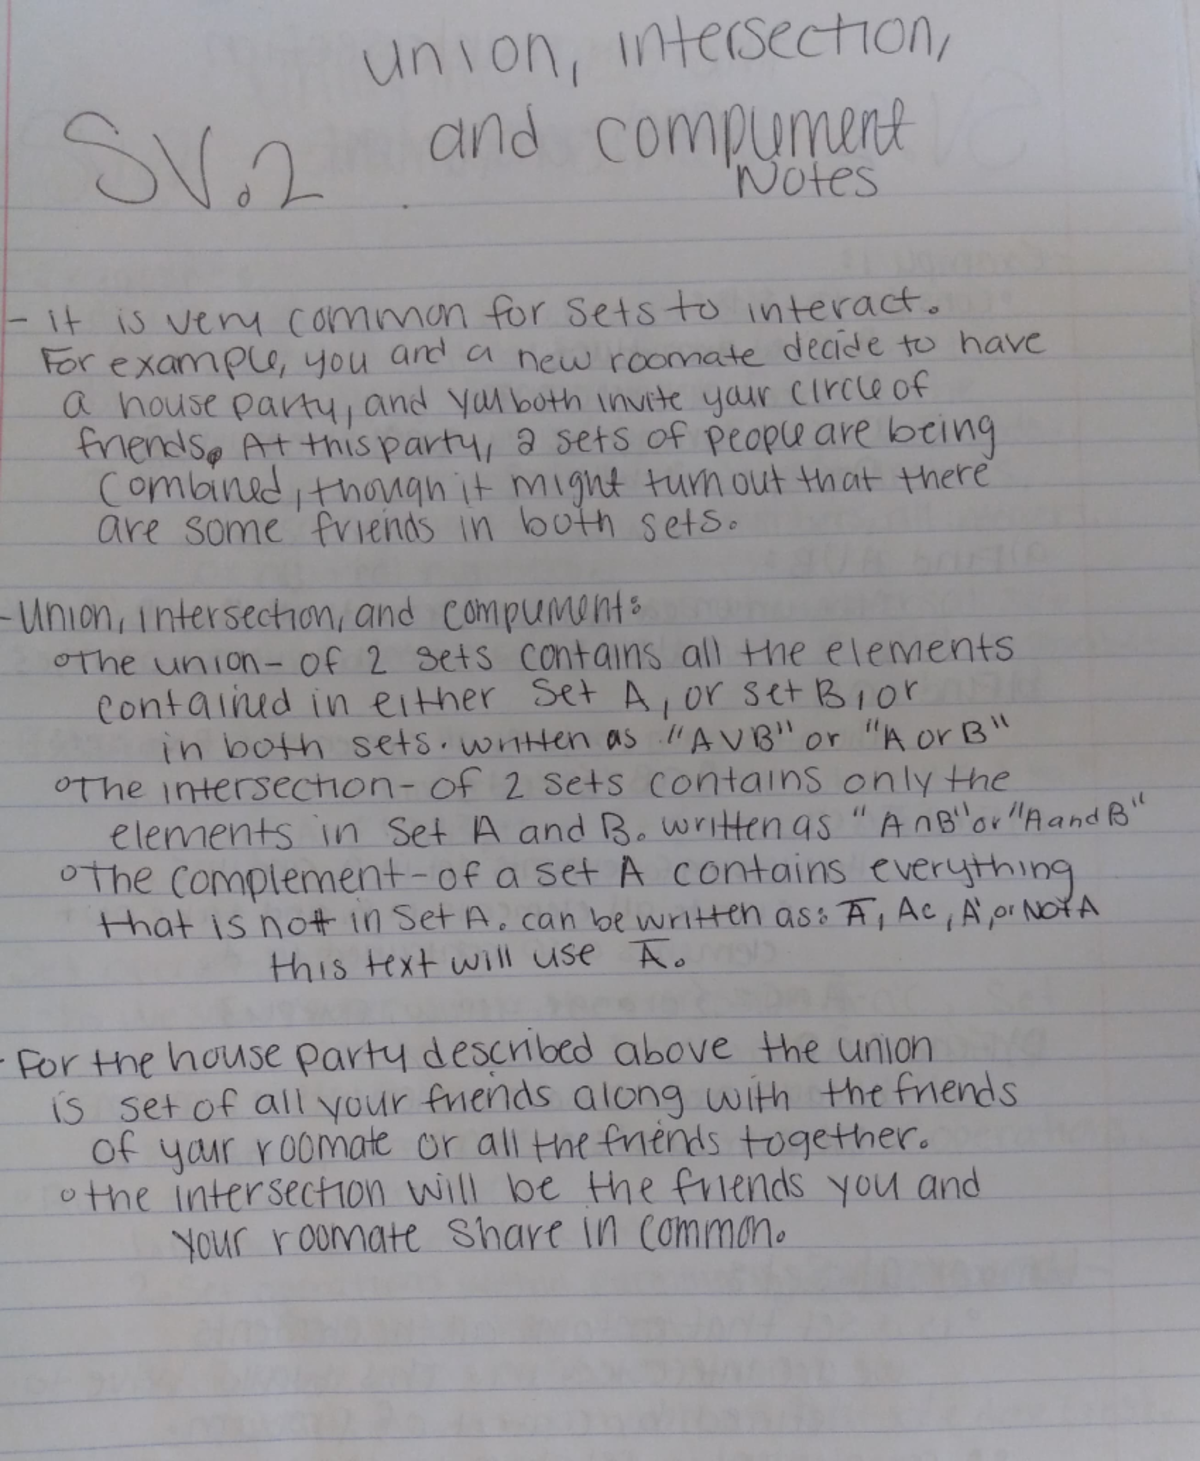 union, intersection,
SV.2 and complement
Notes
- it is very common for sets to interact.
For example, you and a new roomate decide to have
a house party, and you both invite your circle of
friends. At this party, 2 sets of people are being
combined, though it might turn out that there
are some friends in both sets.
- Union, intersection, and complement:
◦The union- of 2 sets contains all the elements
contained in either set A, or set B, or
in both sets. written as "A∪B" or "A or B"
◦The intersection- of 2 sets contains only the
elements in set A and B. written as "A∩B" or "A and B"
◦The complement- of a set A contains everything
that is not in set A. can be written as: A̅, Ac, A', or Not A
this text will use A̅.
- For the house party described above the union
is set of all your friends along with the friends
of your roomate or all the friends together.
◦the intersection will be the friends you and
your roomate share in common.